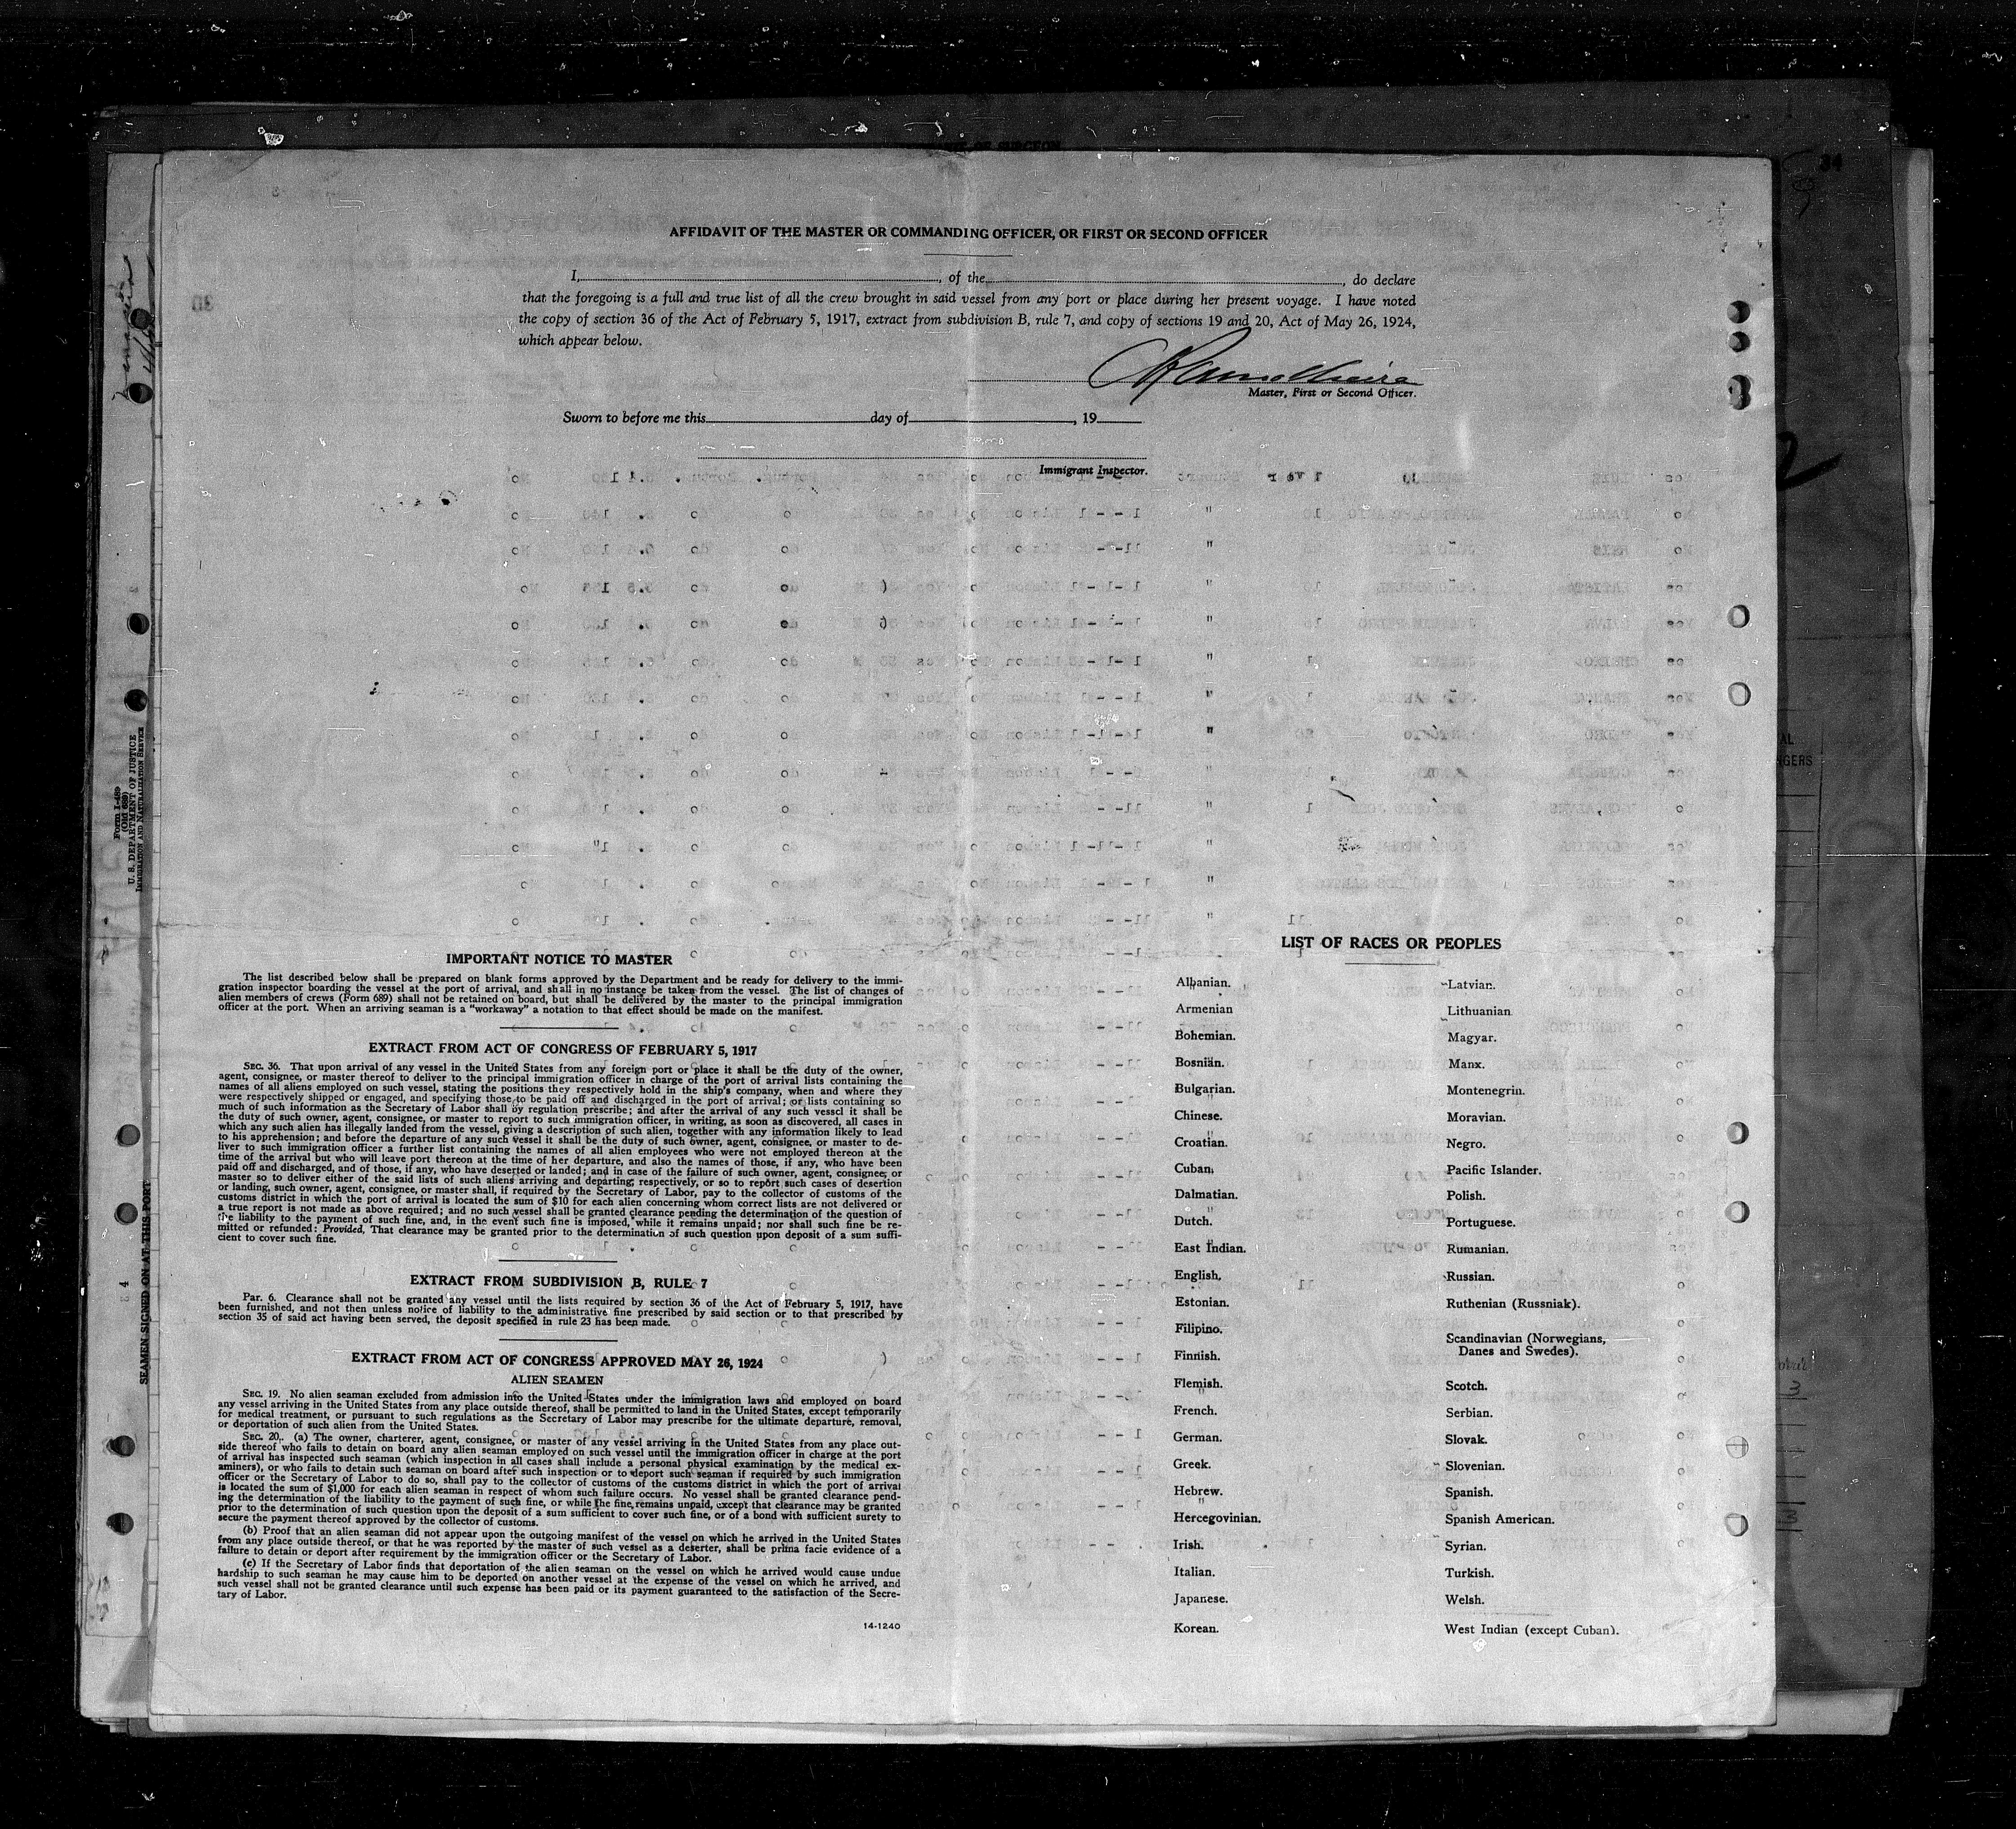 AFFIDAVIT OF THE MASTER OR COMMANDING OFFICER, OR FIRST OR SECOND OFFICER
I, , of the , do declare
that the foregoing is a full and true list of all the crew brought in said vessel from any port or place during her present voyage. I have noted
the copy of section 36 of the Act of February 5, 1917, extract from subdivision B, rule 7, and copy of sections 19 and 20, Act of May 26, 1924,
which appear below.
Master, First or Second Officer.
Sworn to before me this day of , 19
Immigrant Inspector.
IMPORTANT NOTICE TO MASTER
The list described below shall be prepared on blank forms approved by the Department and be ready for delivery to the immi-
gration inspector boarding the vessel at the port of arrival, and shall in no instance be taken from the vessel. The list of changes of
alien members of crews (Form 689) shall not be retained on board, but shall be delivered by the master to the principal immigration
officer at the port. When an arriving seaman is a "workaway" a notation to that effect should be made on the manifest.
EXTRACT FROM ACT OF CONGRESS OF FEBRUARY 5, 1917
SEC. 36. That upon arrival of any vessel in the United States from any foreign port or place it shall be the duty of the owner,
agent, consignee, or master thereof to deliver to the principal immigration officer in charge of the port of arrival lists containing the
names of all aliens employed on such vessel, stating the positions they respectively hold in the ship's company, when and where they
were respectively shipped or engaged, and specifying those to be paid off and discharged in the port of arrival; or lists containing so
much of such information as the Secretary of Labor shall by regulation prescribe; and after the arrival of any such vessel it shall be
the duty of such owner, agent, consignee, or master to report to such immigration officer, in writing, as soon as discovered, all cases in
which any such alien has illegally landed from the vessel, giving a description of such alien, together with any information likely to lead
to his apprehension; and before the departure of any such vessel it shall be the duty of such owner, agent, consignee, or master to de-
liver to such immigration officer a further list containing the names of all alien employees who were not employed thereon at the
time of the arrival but who will leave port thereon at the time of her departure, and also the names of those, if any, who have been
paid off and discharged, and of those, if any, who have deserted or landed; and in case of the failure of such owner, agent, consignee, or
master so to deliver either of the said lists of such aliens arriving and departing, respectively, or so to report such cases of desertion
or landing, such owner, agent, consignee, or master shall, if required by the Secretary of Labor, pay to the collector of customs of the
customs district in which the port of arrival is located the sum of $10 for each alien concerning whom correct lists are not delivered or
a true report is not made as above required; and no such vessel shall be granted clearance pending the determination of the question of
the liability to the payment of such fine, and, in the event such fine is imposed, while it remains unpaid; nor shall such fine be re-
mitted or refunded: Provided, That clearance may be granted prior to the determination of such question upon deposit of a sum suffi-
cient to cover such fine.
EXTRACT FROM SUBDIVISION B, RULE 7
Par. 6. Clearance shall not be granted any vessel until the lists required by section 36 of the Act of February 5, 1917, have
been furnished, and not then unless notice of liability to the administrative fine prescribed by said section or to that prescribed by
section 35 of said act having been served, the deposit specified in rule 23 has been made.
EXTRACT FROM ACT OF CONGRESS APPROVED MAY 26, 1924
ALIEN SEAMEN
SEC. 19. No alien seaman excluded from admission into the United States under the immigration laws and employed on board
any vessel arriving in the United States from any place outside thereof, shall be permitted to land in the United States, except temporarily
for medical treatment, or pursuant to such regulations as the Secretary of Labor may prescribe for the ultimate departure, removal,
or deportation of such alien from the United States.
SEC. 20. (a) The owner, charterer, agent, consignee, or master of any vessel arriving in the United States from any place out-
side thereof who fails to detain on board any alien seaman employed on such vessel until the immigration officer in charge at the port
of arrival has inspected such seaman (which inspection in all cases shall include a personal physical examination by the medical ex-
aminers), or who fails to detain such seaman on board after such inspection or to deport such seaman if required by such immigration
officer or the Secretary of Labor to do so, shall pay to the collector of customs of the customs district in which the port of arrival
is located the sum of $1,000 for each alien seaman in respect of whom such failure occurs. No vessel shall be granted clearance pend-
ing the determination of the liability to the payment of such fine, or while the fine remains unpaid, except that clearance may be granted
prior to the determination of such question upon the deposit of a sum sufficient to cover such fine, or of a bond with sufficient surety to
secure the payment thereof approved by the collector of customs.
(b) Proof that an alien seaman did not appear upon the outgoing manifest of the vessel on which he arrived in the United States
from any place outside thereof, or that he was reported by the master of such vessel as a deserter, shall be prima facie evidence of a
failure to detain or deport after requirement by the immigration officer or the Secretary of Labor.
(c) If the Secretary of Labor finds that deportation of the alien seaman on the vessel on which he arrived would cause undue
hardship to such seaman he may cause him to be deported on another vessel at the expense of the vessel on which he arrived, and
such vessel shall not be granted clearance until such expense has been paid or its payment guaranteed to the satisfaction of the Secre-
tary of Labor.
14-1240
LIST OF RACES OR PEOPLES
Albanian.
Armenian
Bohemian.
Bosnian.
Bulgarian.
Chinese.
Croatian.
Cuban.
Dalmatian.
Dutch.
East Indian.
English.
Estonian.
Filipino.
Finnish.
Flemish.
French.
German.
Greek.
Hebrew.
Hercegovinian.
Irish.
Italian.
Japanese.
Korean.
Latvian.
Lithuanian
Magyar.
Manx.
Montenegrin.
Moravian.
Negro.
Pacific Islander.
Polish.
Portuguese.
Rumanian.
Russian.
Ruthenian (Russniak).
Scandinavian (Norwegians,
Danes and Swedes).
Scotch.
Serbian.
Slovak.
Slovenian.
Spanish.
Spanish American.
Syrian.
Turkish.
Welsh.
West Indian (except Cuban).
Form I-489
(Old 689)
U. S. DEPARTMENT OF JUSTICE
IMMIGRATION AND NATURALIZATION SERVICE
SEAMEN SIGNED ON AT THIS PORT
34